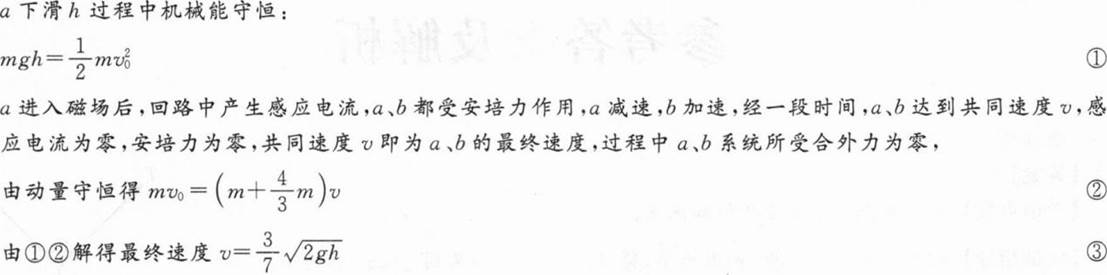 a 下滑 h 过程中机械能守恒:
mgh=\frac{1}{2}mv_0^2 ①
a 进入磁场后,回路中产生感应电流,a、b 都受安培力作用,a 减速,b 加速,经一段时间,a、b 达到共同速度 v,感
应电流为零,安培力为零,共同速度 v 即为 a、b 的最终速度,过程中 a、b 系统所受合外力为零,
由动量守恒得 mv_0=(m+\frac{4}{3}m)v ②
由①②解得最终速度 v=\frac{3}{7}\sqrt{2gh} ③